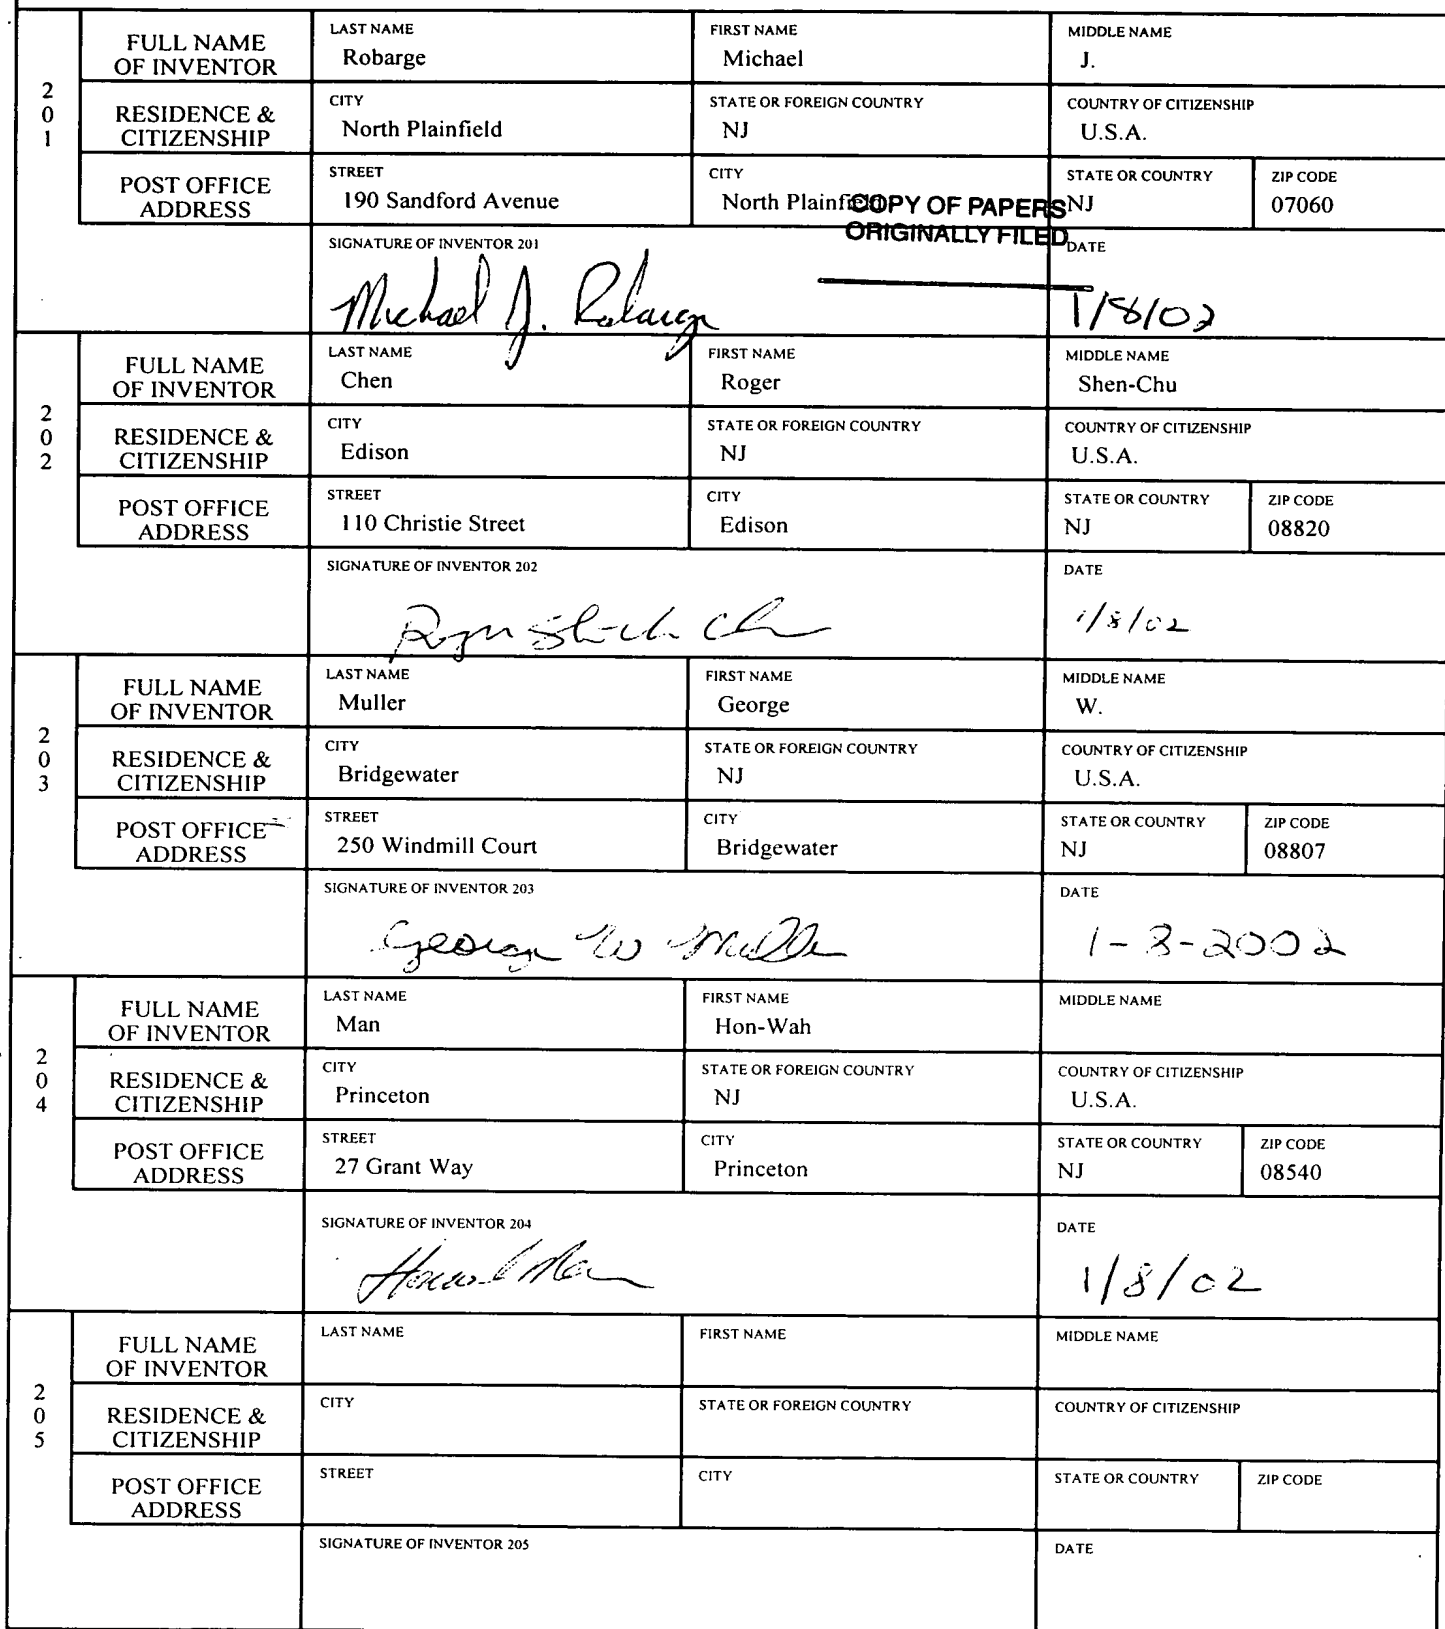 201
FULL NAME OF INVENTOR
LAST NAME
Robarge
FIRST NAME
Michael
MIDDLE NAME
J.
RESIDENCE & CITIZENSHIP
CITY
North Plainfield
STATE OR FOREIGN COUNTRY
NJ
COUNTRY OF CITIZENSHIP
U.S.A.
POST OFFICE ADDRESS
STREET
190 Sandford Avenue
CITY
North Plainfield
STATE OR COUNTRY
NJ
ZIP CODE
07060
COPY OF PAPERS
ORIGINALLY FILED
SIGNATURE OF INVENTOR 201
Michael J. Robarge
DATE
1/8/02
202
FULL NAME OF INVENTOR
LAST NAME
Chen
FIRST NAME
Roger
MIDDLE NAME
Shen-Chu
RESIDENCE & CITIZENSHIP
CITY
Edison
STATE OR FOREIGN COUNTRY
NJ
COUNTRY OF CITIZENSHIP
U.S.A.
POST OFFICE ADDRESS
STREET
110 Christie Street
CITY
Edison
STATE OR COUNTRY
NJ
ZIP CODE
08820
SIGNATURE OF INVENTOR 202
DATE
1/8/02
203
FULL NAME OF INVENTOR
LAST NAME
Muller
FIRST NAME
George
MIDDLE NAME
W.
RESIDENCE & CITIZENSHIP
CITY
Bridgewater
STATE OR FOREIGN COUNTRY
NJ
COUNTRY OF CITIZENSHIP
U.S.A.
POST OFFICE ADDRESS
STREET
250 Windmill Court
CITY
Bridgewater
STATE OR COUNTRY
NJ
ZIP CODE
08807
SIGNATURE OF INVENTOR 203
George W Muller
DATE
1-8-2002
204
FULL NAME OF INVENTOR
LAST NAME
Man
FIRST NAME
Hon-Wah
MIDDLE NAME
RESIDENCE & CITIZENSHIP
CITY
Princeton
STATE OR FOREIGN COUNTRY
NJ
COUNTRY OF CITIZENSHIP
U.S.A.
POST OFFICE ADDRESS
STREET
27 Grant Way
CITY
Princeton
STATE OR COUNTRY
NJ
ZIP CODE
08540
SIGNATURE OF INVENTOR 204
DATE
1/8/02
205
FULL NAME OF INVENTOR
LAST NAME
FIRST NAME
MIDDLE NAME
RESIDENCE & CITIZENSHIP
CITY
STATE OR FOREIGN COUNTRY
COUNTRY OF CITIZENSHIP
POST OFFICE ADDRESS
STREET
CITY
STATE OR COUNTRY
ZIP CODE
SIGNATURE OF INVENTOR 205
DATE